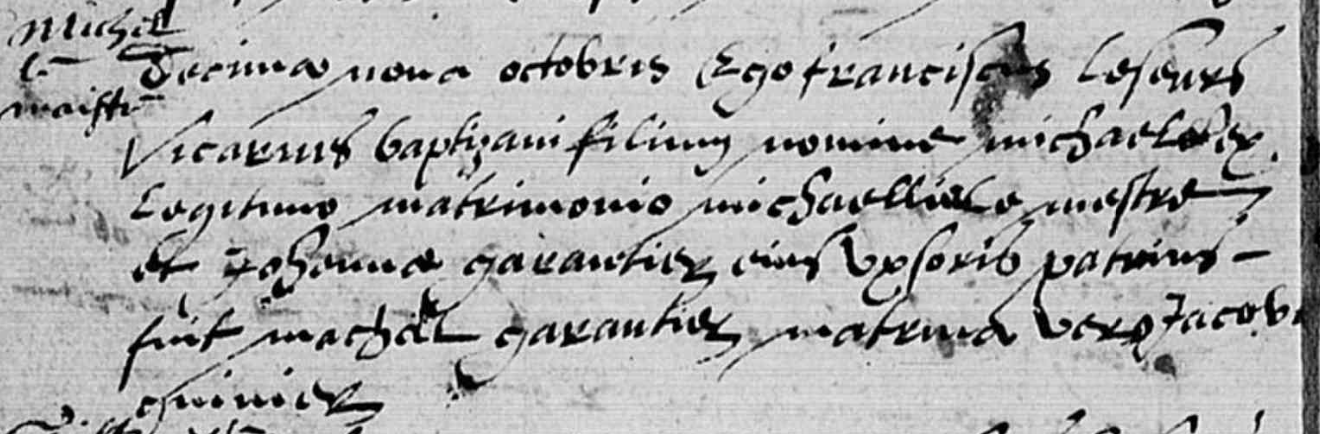 Michel
le
maistre
Decima nona octobris Ego franciscus leseurs
Vicarius baptizavi filium nomine michaelem ex
Legitimo matrimonio michaellis le mestre
et Johanna garantier eius uxoris patrinus
fuit machel garantier matrina vero Jacob